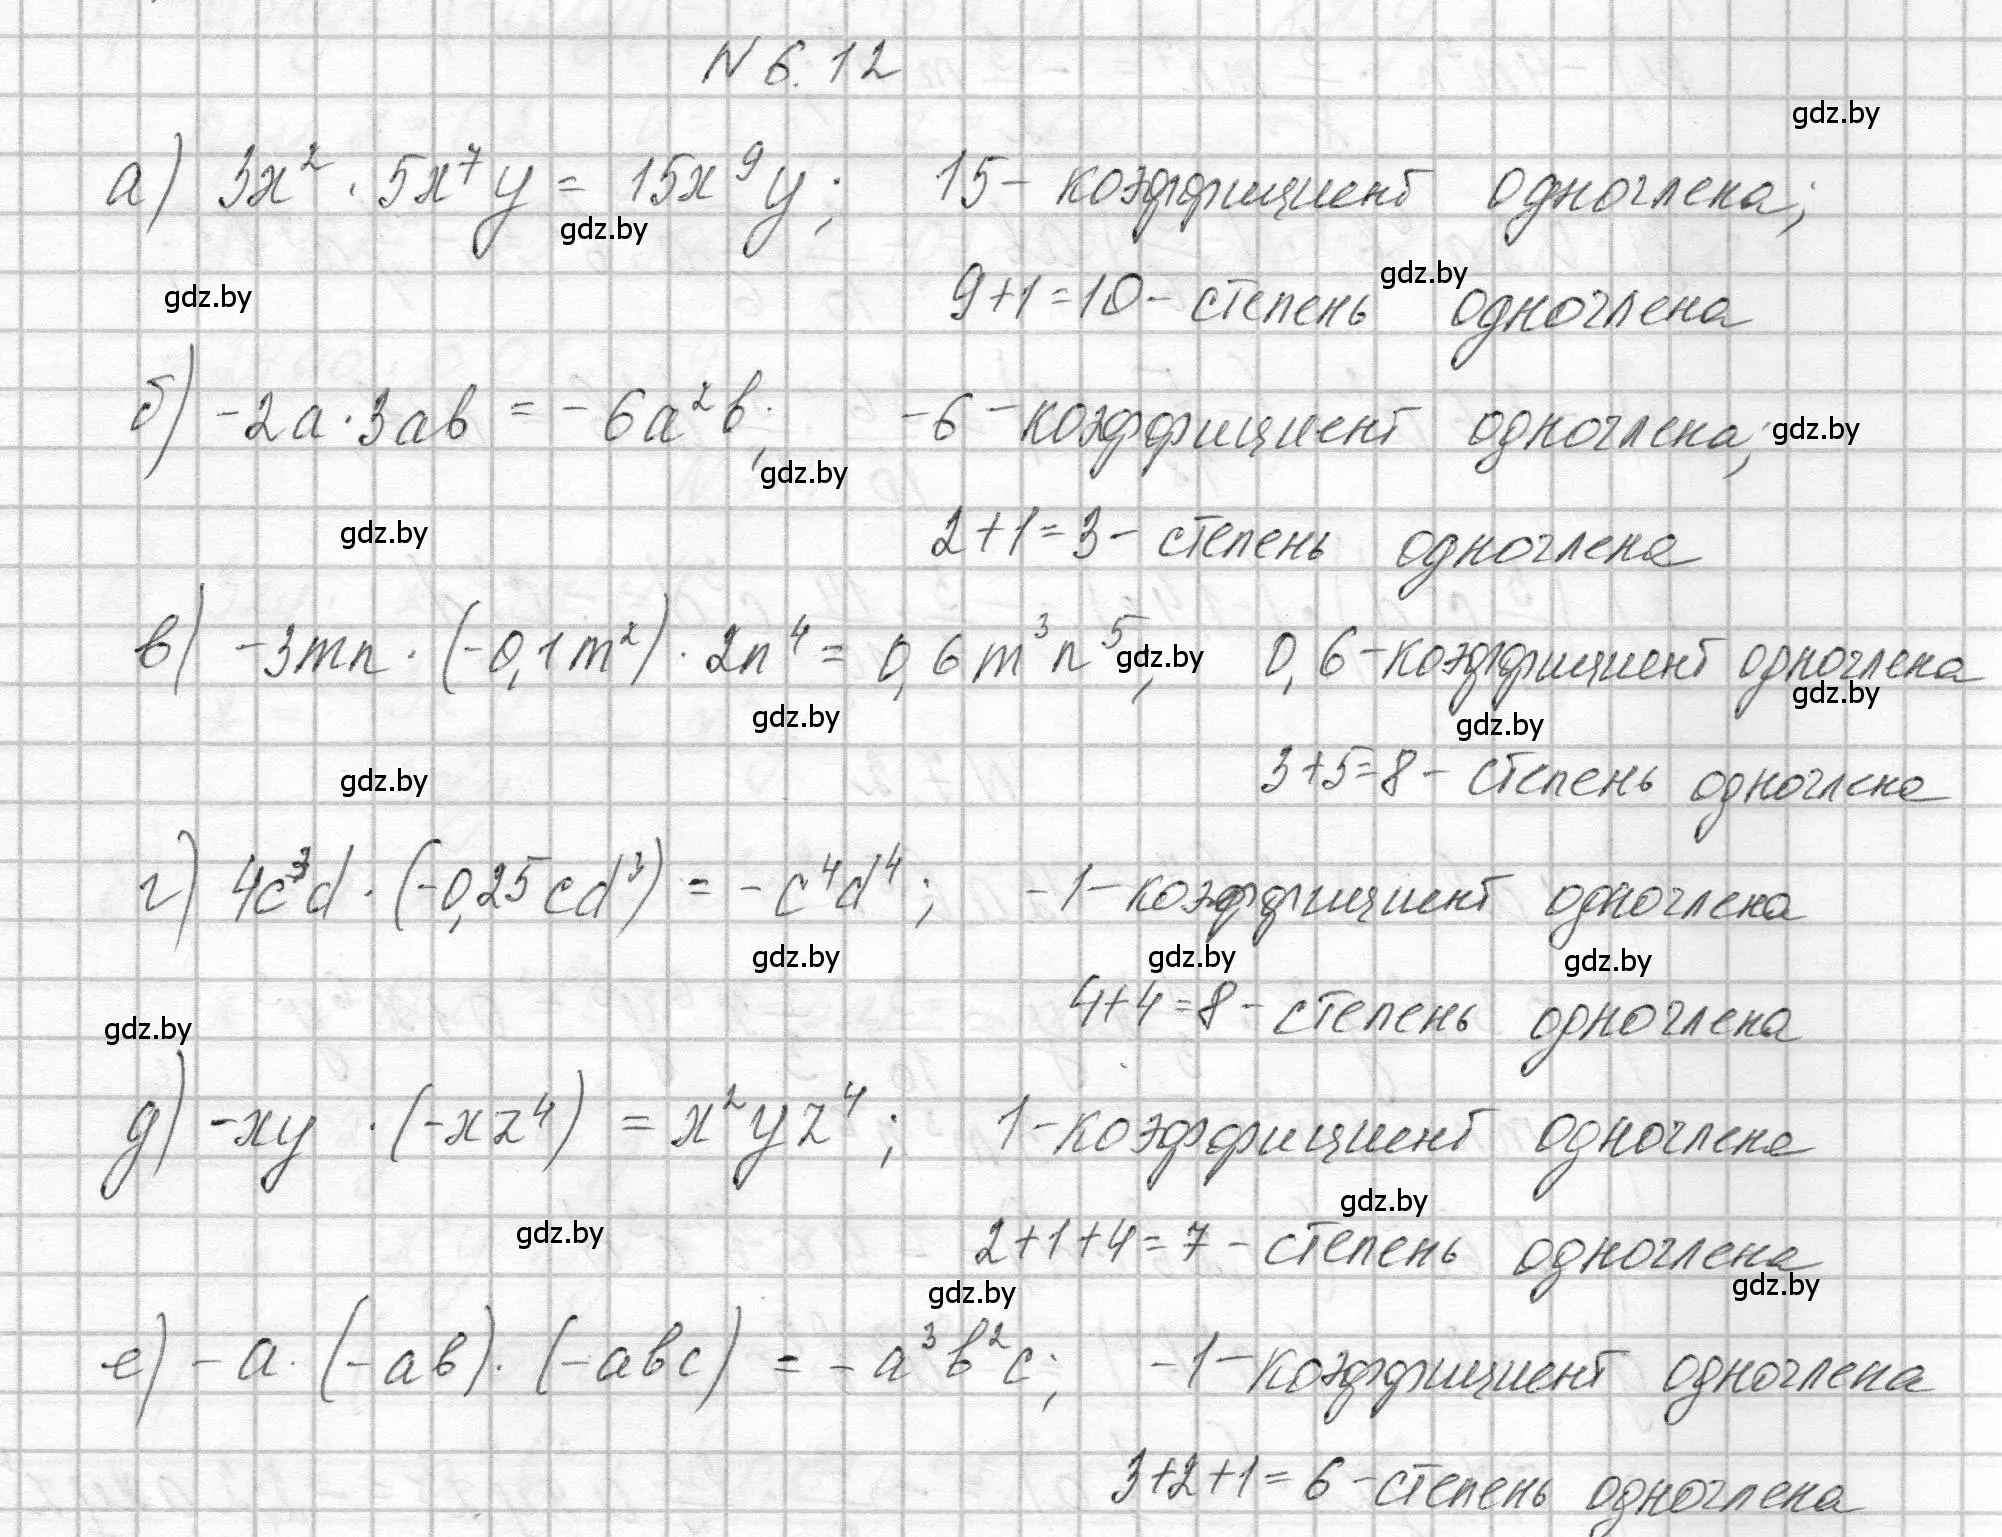 N 6.12
gdz.by
а) 3x² · 5x⁷y = 15x⁹y; 15 – коэффициент одночлена;
gdz.by
gdz.by 9+1=10 – степень gdz.by одночлена
б) -2a·3ab = -6a²b; -6 – коэффициент одночлена; gdz.by
gdz.by
gdz.by 2+1=3 – степень одночлена
в) -3mn · (-0,1m²) · 2n⁴ = 0,6m³n⁵; gdz.by 0,6 – коэффициент одночлена
gdz.by gdz.by gdz.by
gdz.by 3+5=8 – степень одночлена
г) 4c³d · (-0,25cd³) = -c⁴d⁴; -1 – коэффициент одночлена
gdz.by gdz.by gdz.by
gdz.by 4+4=8 – степень одночлена
д) -xy · (-xz⁴) = x²yz⁴; 1 – коэффициент одночлена
gdz.by gdz.by
2+1+4=7 – степень одночлена
gdz.by gdz.by
е) -a · (-ab) · (-abc) = -a³b²c; -1 – коэффициент одночлена
3+2+1=6 – степень одночлена